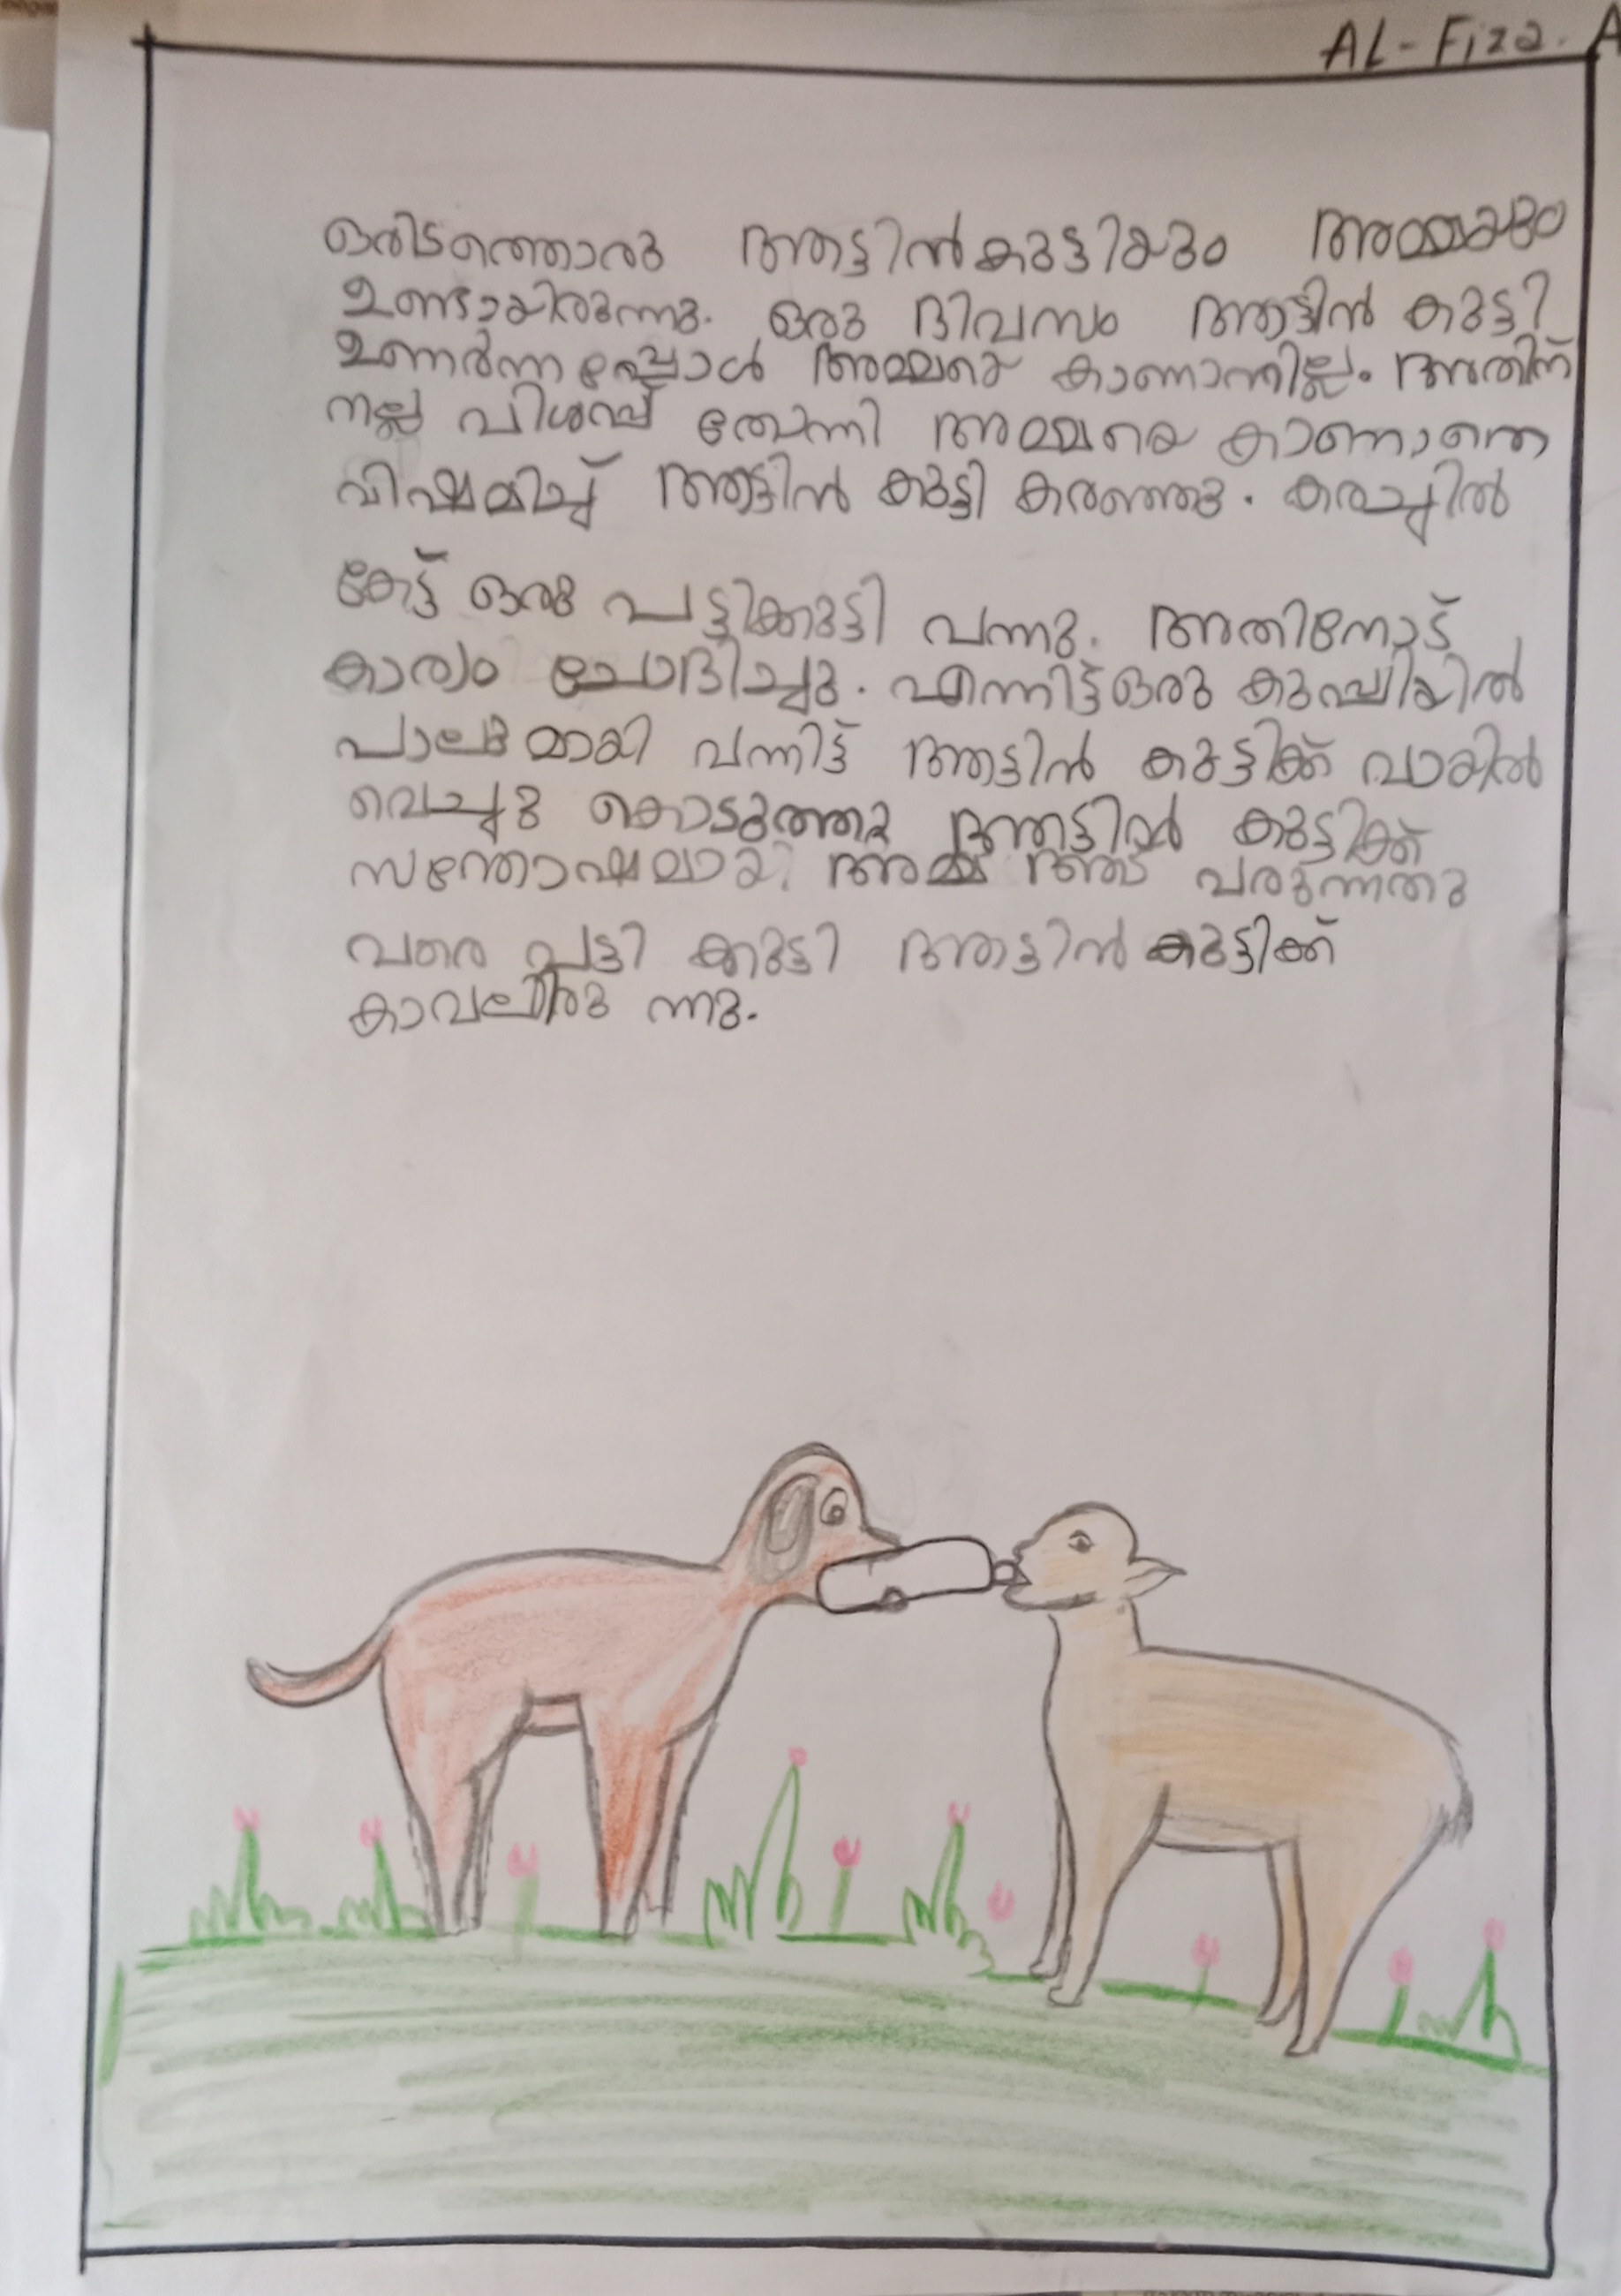 AL-Fiza. A
ഒരിടത്തൊരു ആട്ടിൻകുട്ടിയും അമ്മയും
ഉണ്ടായിരുന്നു. ഒരു ദിവസം ആട്ടിൻ കുട്ടി
ഉണർന്നപ്പോൾ അമ്മയെ കാണാനില്ല. അതിന്
നല്ല വിശപ്പ് തോന്നി അമ്മയെ കാണാതെ
വിഷമിച്ച് ആട്ടിൻ കുട്ടി കരഞ്ഞു. കരച്ചിൽ
കേട്ട് ഒരു പട്ടിക്കുട്ടി വന്നു. അതിനോട്
കാര്യം ചോദിച്ചു. എന്നിട്ട് ഒരു കുപ്പിയിൽ
പാലുമായി വന്നിട്ട് ആട്ടിൻ കുട്ടിക്ക് വായിൽ
വെച്ചു കൊടുത്തു ആട്ടിൻ കുട്ടിക്ക്
സന്തോഷമായി അമ്മ ആട് വരുന്നതു
വരെ പട്ടി ക്കുട്ടി ആട്ടിൻ കുട്ടിക്ക്
കാവലിരു ന്നു.